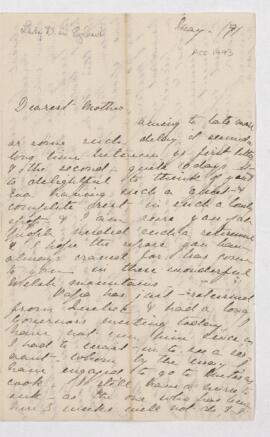 May /91
Lady D. in England
ACC 1493
Dearest Mother
owing to late mail
or some such delay it seemed a
long time between yr first letter
& the second - quite 10 days. It
is delightful to think of you &
Eva having such a quiet &
complete rest in such a lovely
spot & I am sure you both
needed such a retirement
& I hope the repose you have
always craved for has come
to you in those wonderful
Welsh mountains.
Papa has just returned
from & had a long
Governors meeting today. I
have not seen him since as
I had to go in to see a serv
ant whom by the way I
have engaged to go to
cook. I still have a nurse to
seek - as the one who has been
here 3 weeks will not do &